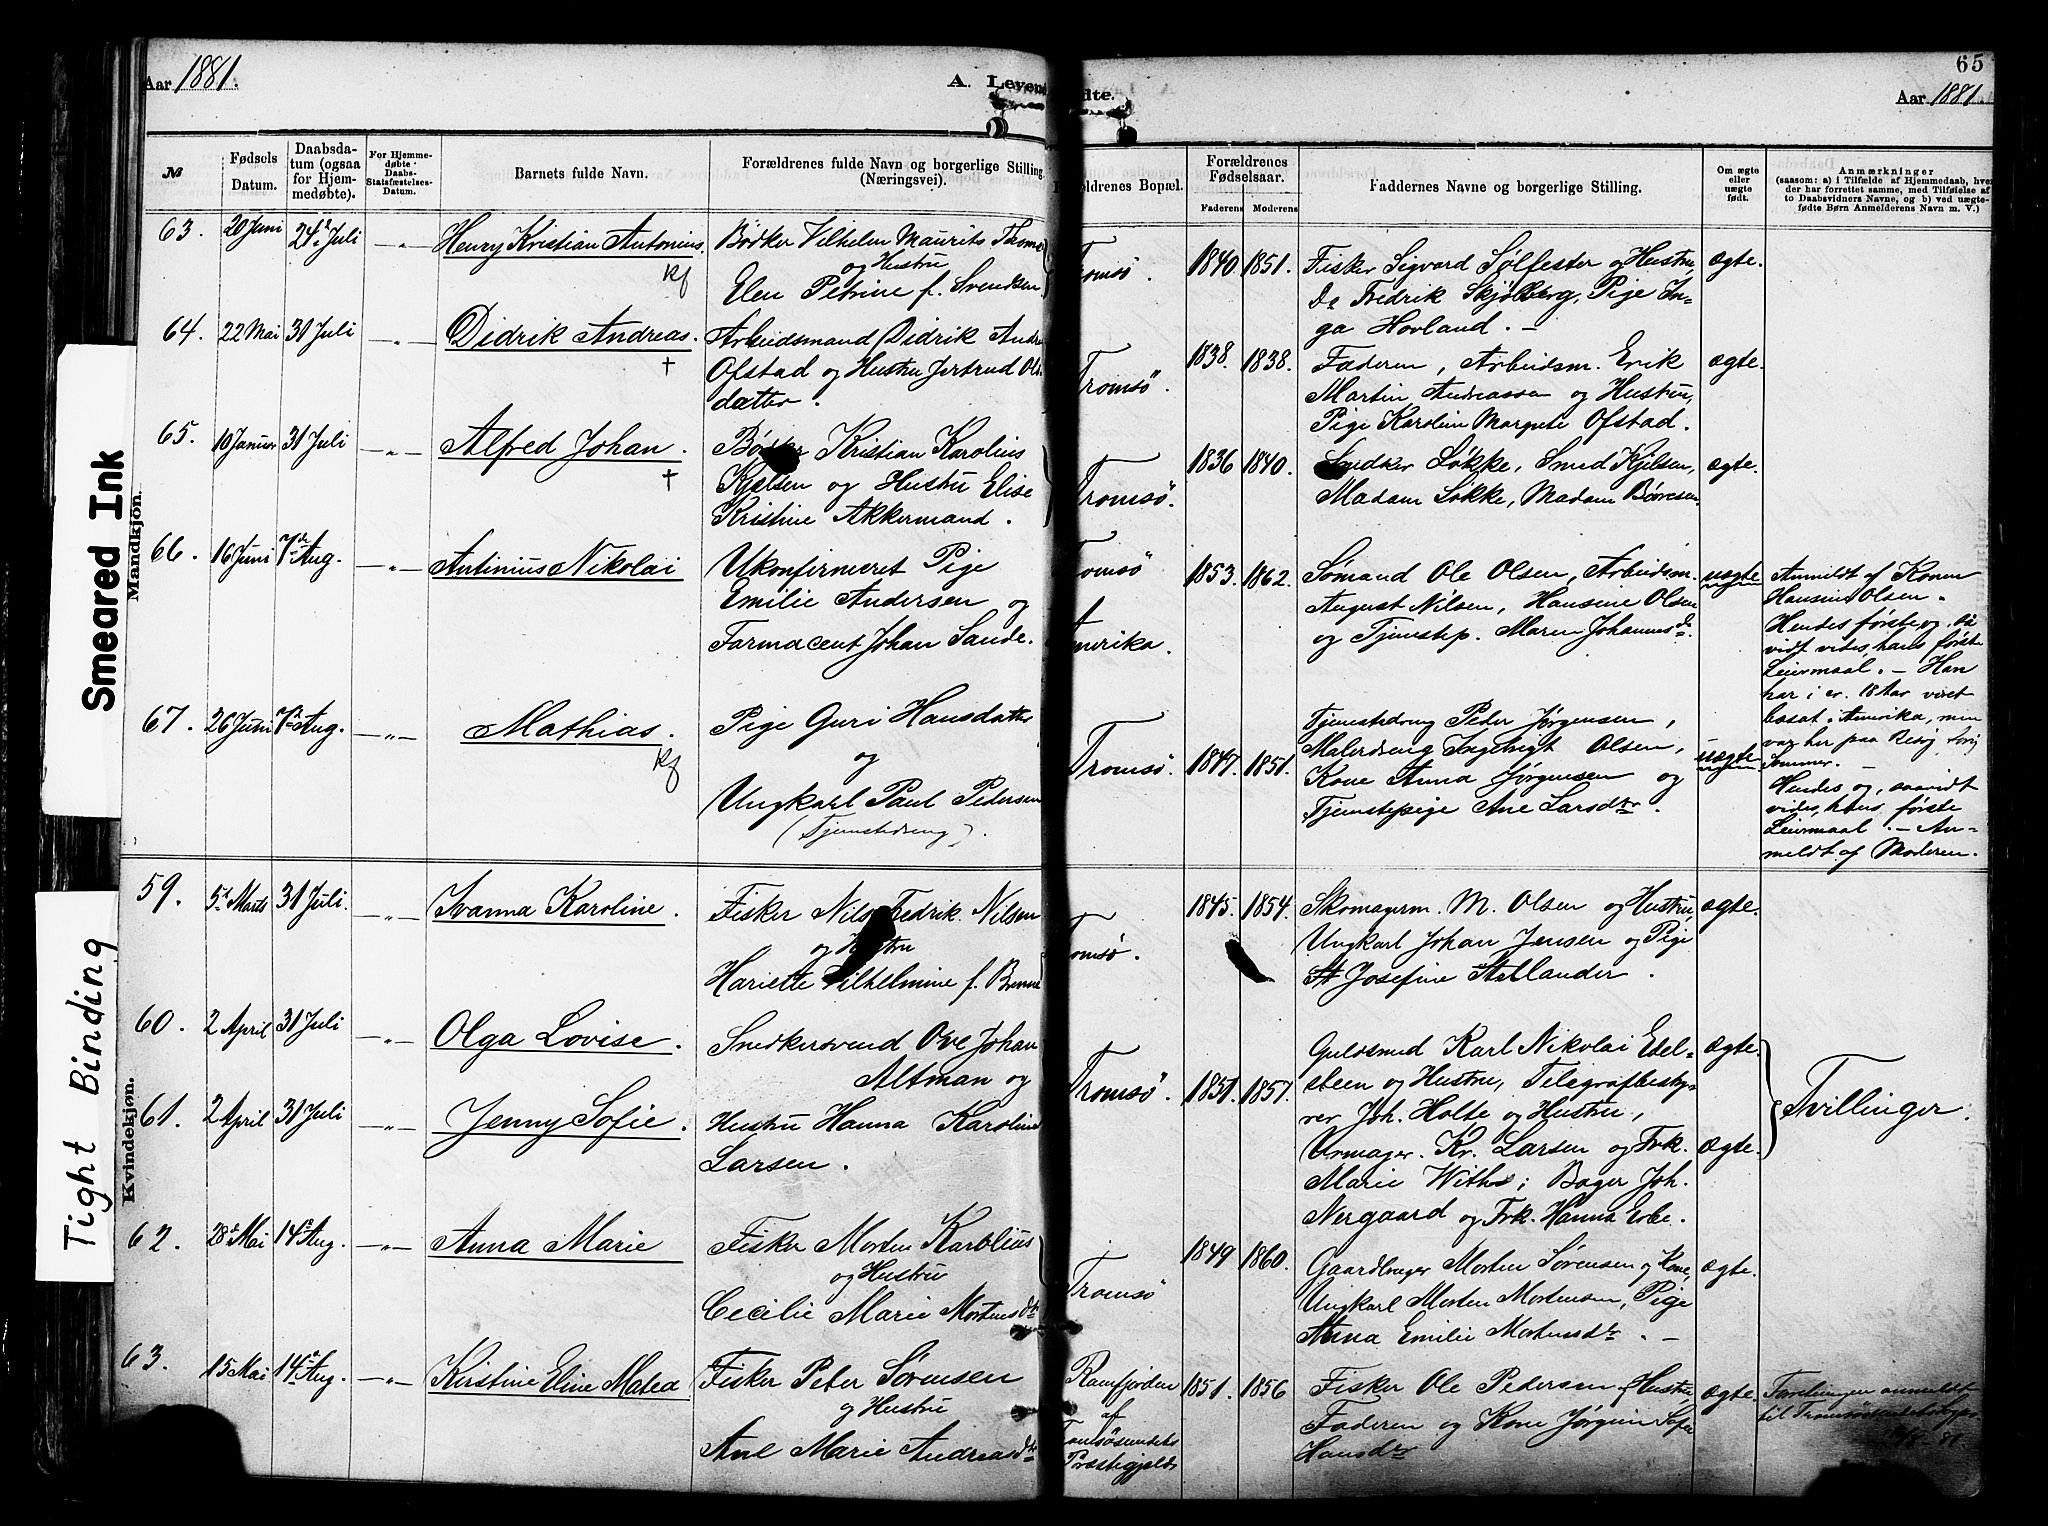 65
Aar 1881.
A. Leven
dte.
Aar 1881.
№
Fødsels Datum.
Daabsdatum (ogsaa for Hjemmedøbte).
For Hjemmedøbte · Daabs-Statsfæstelses-Datum.
Barnets fulde Navn.
Forældrenes fulde Navn og borgerlige Stilling. (Næringsvei).
oldrenes Bopæl.
Forældrenes Fødselsaar.
Faderens
Moderens
Faddernes Navne og borgerlige Stilling.
Om ægte eller uægte født.
Anmærkninger
(saasom: a) i Tilfælde af Hjemmedaab, hver
der har forrettet samme, med Tilføielse af
to Daabsvidners Navne, og b) ved uægte-
fødte Børn Anmelderens Navn m. V.)
Smeared Ink
Mandkjøn.
63. 20 Juni 24de Juli -"- Henry Kristian Antonius. kf
Bødker Vilhelm Maurits
og Hustru
Elen Petrine f. Svendsen
Tromsö. 1840. 1851.
Fisker Sigvard Sølfester og Hustru,
Do Fredrik Skjølberg, Pige In-
ga Hovland. –
ægte.
64. 22 Mai 31 Juli -"- Didrik Andreas. †
Arbeidsmand Didrik Andr
Ofstad og Hustru Jertrud Ols
datter.
Tromsö. 1838. 1838.
Faderen, Arbeidsm. Erik
Martin Andreassen og Hustru,
Pige Karoline Margrete Ofstad.
ægte.
65. 10 Januar 31 Juli -"- Alfred Johan. †
Bødker Kristian Karolius
Kjelsen og Hustru Elise
Kristine Akkermand.
Tromsö. 1836 1840.
Snedker Løkke, Smed Kjelsen,
Madam Løkke, Madam Børresen
ægte.
66. 16 Juni 7de Aug. -"- Antinius Nikolai
Ukonfirmeret Pige
Emilie Andersen og
Farmaceut Johan Sande.
Tromsö
Amerika.
1853. 1862.
Sømand Ole Olsen, Arbeidsm.
August Nilsen, Hansine Olsen
og Tjenstep. Maren Johannesd.
uægte
Anmeldt af Konen
Hansine Olsen.
Hendes første og, så
vidt vides, hans første
Leiermaal. – Han
har i er. 18 Aar været
bosat i Amerika, men
var her paa Besøg forrig
Sommer. –
67. 26 Juni 7de Aug. -"- Mathias. kf
Pige Guri Hansdatter
og
Ungkarl Paul Pedersen
(Tjenstedreng).
Tromsö. 1847. 1851.
Tjenstedreng Peder Jørgensen,
Malerdreng Ingebrigt Olsen,
Kone Anna Jørgensen og
Tjenstepige Ane Larsdtr.
uægte
Hendes og, saavidt
vides, hans første
Leiermaal. – An-
meldt af Moderen.
Tight Binding
Kvindekjøn.
59. 5te Marts 31 Juli. -"- Ivanna Karoline.
Fisker Nils Fredrik Nilsen
og Hustru
Hariette Vilhelmine f.
Tromsö. 1845. 1854.
Skomagerm. M. Olsen og Hustru,
Ungkarl Johan Jensen og Pige
Josefine Stellander.
ægte.
60. 2 April 31 Juli -"- Olga Lovise.
61. 2 April 31 Juli -"- Jenny Sofie.
Snedkersvend Ove Johan
Altman og
Hustru Hanna Karoline
Larsen.
Tromsö. 1851. 1857.
Guldsmed Karl Nikolai Edel-
steen og Hustru, Telegrafbesty-
rer Joh. Holte og Hustru,
Urmager. Kr. Larsen og Frk.
Marie Withs; Bager Joh.
Nergaard og Frk. Hanna Ebbe.
ægte.
ægte.
Tvillinger.
62. 28de Mai 14de Aug. -"- Anna Marie
Fisker Morten Karolius
og Hustru
Cecilie Marie Mortensdtr
Tromsö 1849 1860.
Gaardbruger Morten Sørensen og Kone,
Ungkarl Morten Mortensen, Pige
Anna Emilie Mortensdtr. –
ægte.
63. 15 Mai 14de Aug. -"- Kirstine Eline Matea
Fisker Peter Sørensen
og Hustru
Ane Marie Andreasdtr
Ramfjorden
af
Tromsøsundets
Præstegjeld
1851. 1856
Fisker Ole Pedersen, Hustru,
Faderen og Kone Jørgine Sofie
Hansdtr
ægte.
anmeldt
til Tromsøsundets